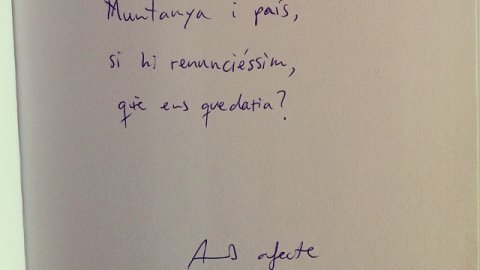 Muntanya i país,
si hi renunciéssim,
què ens quedaria?
Amb afecte